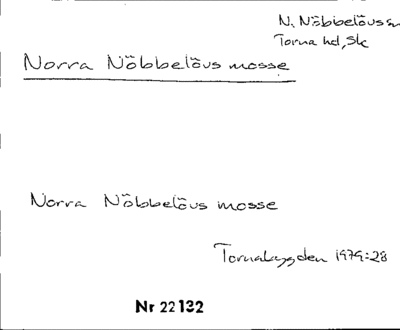 N. Nöbbelövs sn
Torna hd, Sk
Norra Nöbbelövs mosse
Norra Nöbbelövs mosse
Tornabygden 1979:28
Nr 22132